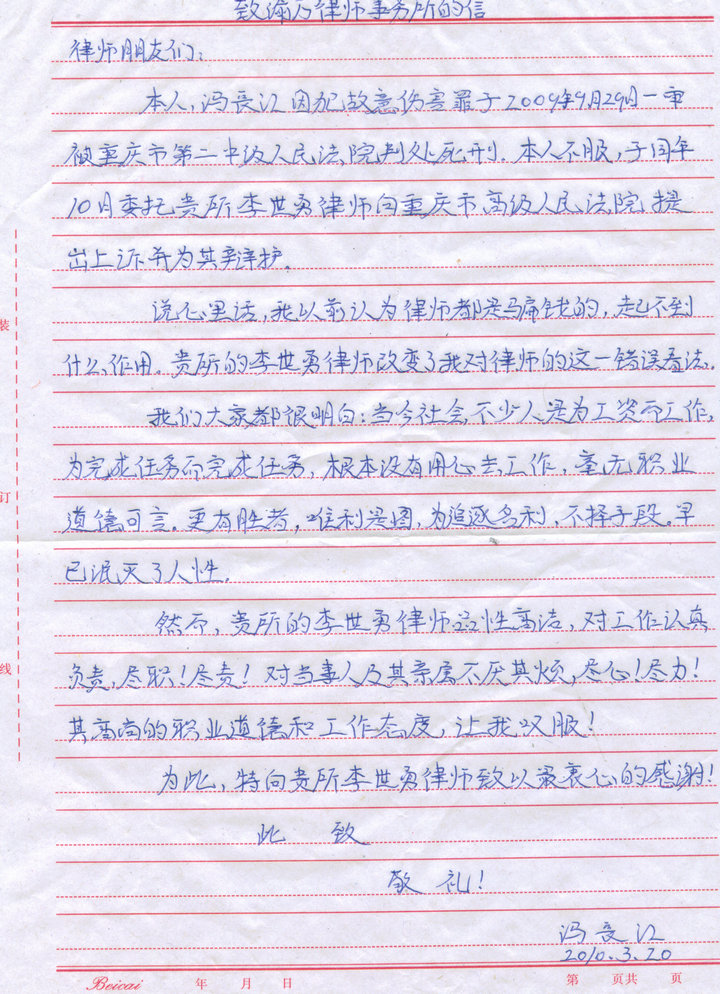 致渝万律师事务所的信
律师朋友们：
本人，冯长江因犯故意伤害罪于2009年9月29日一审
被重庆市第二中级人民法院判处死刑．本人不服，于同年
10月委托贵所李世勇律师向重庆市高级人民法院提
出上诉并为其辩护．
说心里话，我以前认为律师都是骗钱的，起不到
什么作用．贵所的李世勇律师改变了我对律师的这一错误看法．
我们大家都很明白：当今社会，不少人是为工资而工作，
为完成任务而完成任务，根本没有用心去工作，毫无职业
道德可言．更有胜者，唯利是图，为追逐名利，不择手段．早
已泯灭了人性．
然而，贵所的李世勇律师品性高洁，对工作认真
负责，尽职！尽责！对当事人及其亲属不厌其烦，尽心！尽力！
其高尚的职业道德和工作态度，让我叹服！
为此，特向贵所李世勇律师致以最衷心的感谢！
此 致
敬 礼！
冯长江
2010.3.20
装
订
线
Beicai 年 月 日 第 页共 页